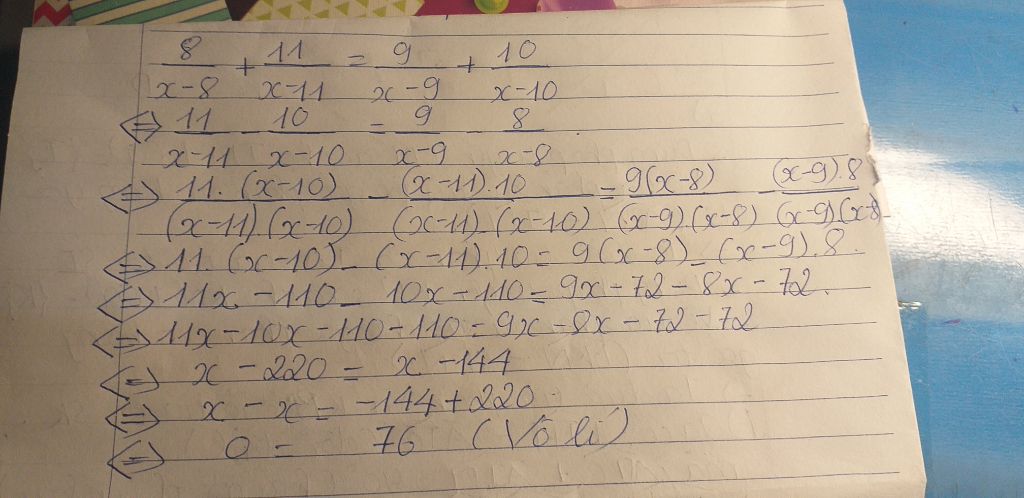 8/(x-8) + 11/(x-11) = 9/(x-9) + 10/(x-10)
⇔ 11/(x-11) - 10/(x-10) = 9/(x-9) - 8/(x-8)
⇔ 11.(x-10)/(x-11).(x-10) - (x-11).10/(x-11).(x-10) = 9(x-8)/(x-9).(x-8) - (x-9).8/(x-9)(x-8)
⇔ 11.(x-10) - (x-11).10 = 9(x-8) - (x-9).8
⇔ 11x - 110 - 10x - 110 = 9x - 72 - 8x - 72.
⇔ 11x - 10x - 110 - 110 = 9x - 8x - 72 - 72
⇔ x - 220 = x - 144
⇔ x - x = -144 + 220
⇔ 0 = 76 (Vô lí)